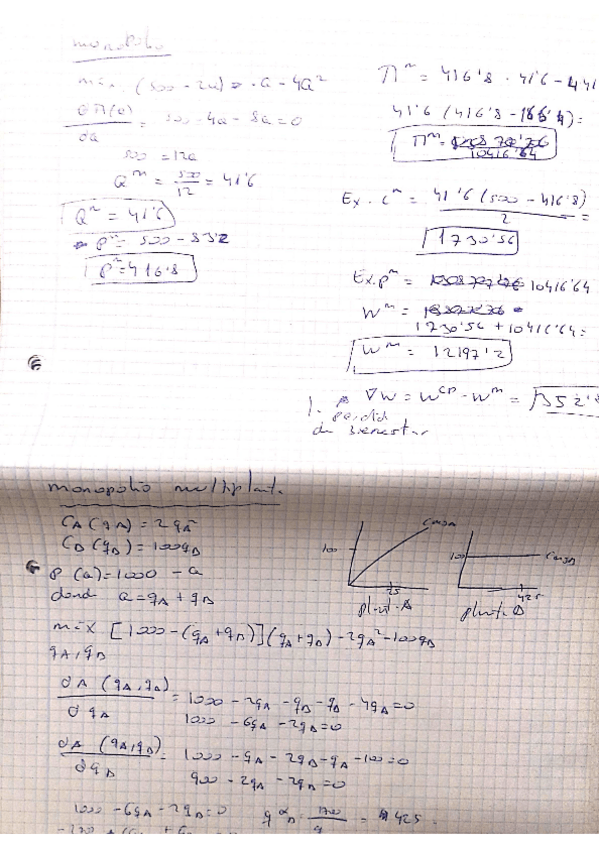 monopolio
máx. (500 - 2Q) Q - 4Q²
∂Π(Q)/∂Q = 500 - 4Q - 8Q = 0
500 = 12Q
Qᵐ = 500/12 = 41'6
Qᵐ = 41'6
Pᵐ = 500 - 83'2
Pᵐ = 416'8
Πᵐ = 416'8 · 41'6 - 4 41
41'6 (416'8 - 166'4) =
Πᵐ = 10416'64
Ex. Cᵐ = 41'6 (500 - 416'8) / 2 =
1730'56
Ex. Pᵐ = 10416'64
Wᵐ =
1730'56 + 10416'64 =
Wᵐ = 12197'2
∇W = Wᶜᵖ - Wᵐ = 1352'8
pérdida
de bienestar
monopolio multiplanta
C_A (q_A) = 2q_A²
C_B (q_B) = 100q_B
P (Q) = 1000 - Q
donde Q = q_A + q_B
CMg_A
100
25
planta A
CMg_B
100
425
planta B
máx [1000 - (q_A + q_B)] (q_A + q_B) - 2q_A² - 100q_B
q_A, q_B
∂Π (q_A, q_B) / ∂q_A = 1000 - 2q_A - q_B - q_B - 4q_A = 0
1000 - 6q_A - 2q_B = 0
∂Π (q_A, q_B) / ∂q_B = 1000 - q_A - 2q_B - q_A - 100 = 0
900 - 2q_A - 2q_B = 0
1000 - 6q_A - 2q_B = 0 q_B = 1700/4 = 425